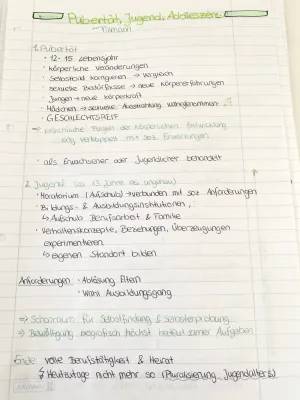 Pubertät, Jugend, Adoleszenz
1. Pubertät
• 12-15 Lebensjahr
• Körperliche Veränderungen
• Selbstbild korrigieren → Vergleich
• sexuelle Bedürfnisse → neue Körpererfahrungen
Jungen → neue Körperkraft
• Mädchen → sexuelle Ausstrahlung wahrgenommen
• GESCHLECHTSREIF
⇒ Folgen der körperlichen Entwicklung
eng verknüpft mit soz. Erwartungen
• als Erwachsener oder Jugendlicher behandelt
2. Jugend
• Moratorium (Aufschub) → verbunden mit soz. Anforderungen
• Bildungs- & Ausbildungsinstitutionen,
↳ Aufschub Berufsarbeit & Familie
• Verhaltenskonzepte, Beziehungen, Überzeugungen
experimentieren
↳ eigenen Standort bilden
Anforderungen • Ablösung Eltern
• Wahl Ausbildungsgang
⇒ Schonraum für Selbstfindung & Selbsterprobung
⇒ Bewältigung biografisch höchst bedeutsamer Aufgaben
Ende volle Berufstätigkeit & Heirat
↳ Heutzutage nicht mehr so (Pluralisierung Jugendalters)